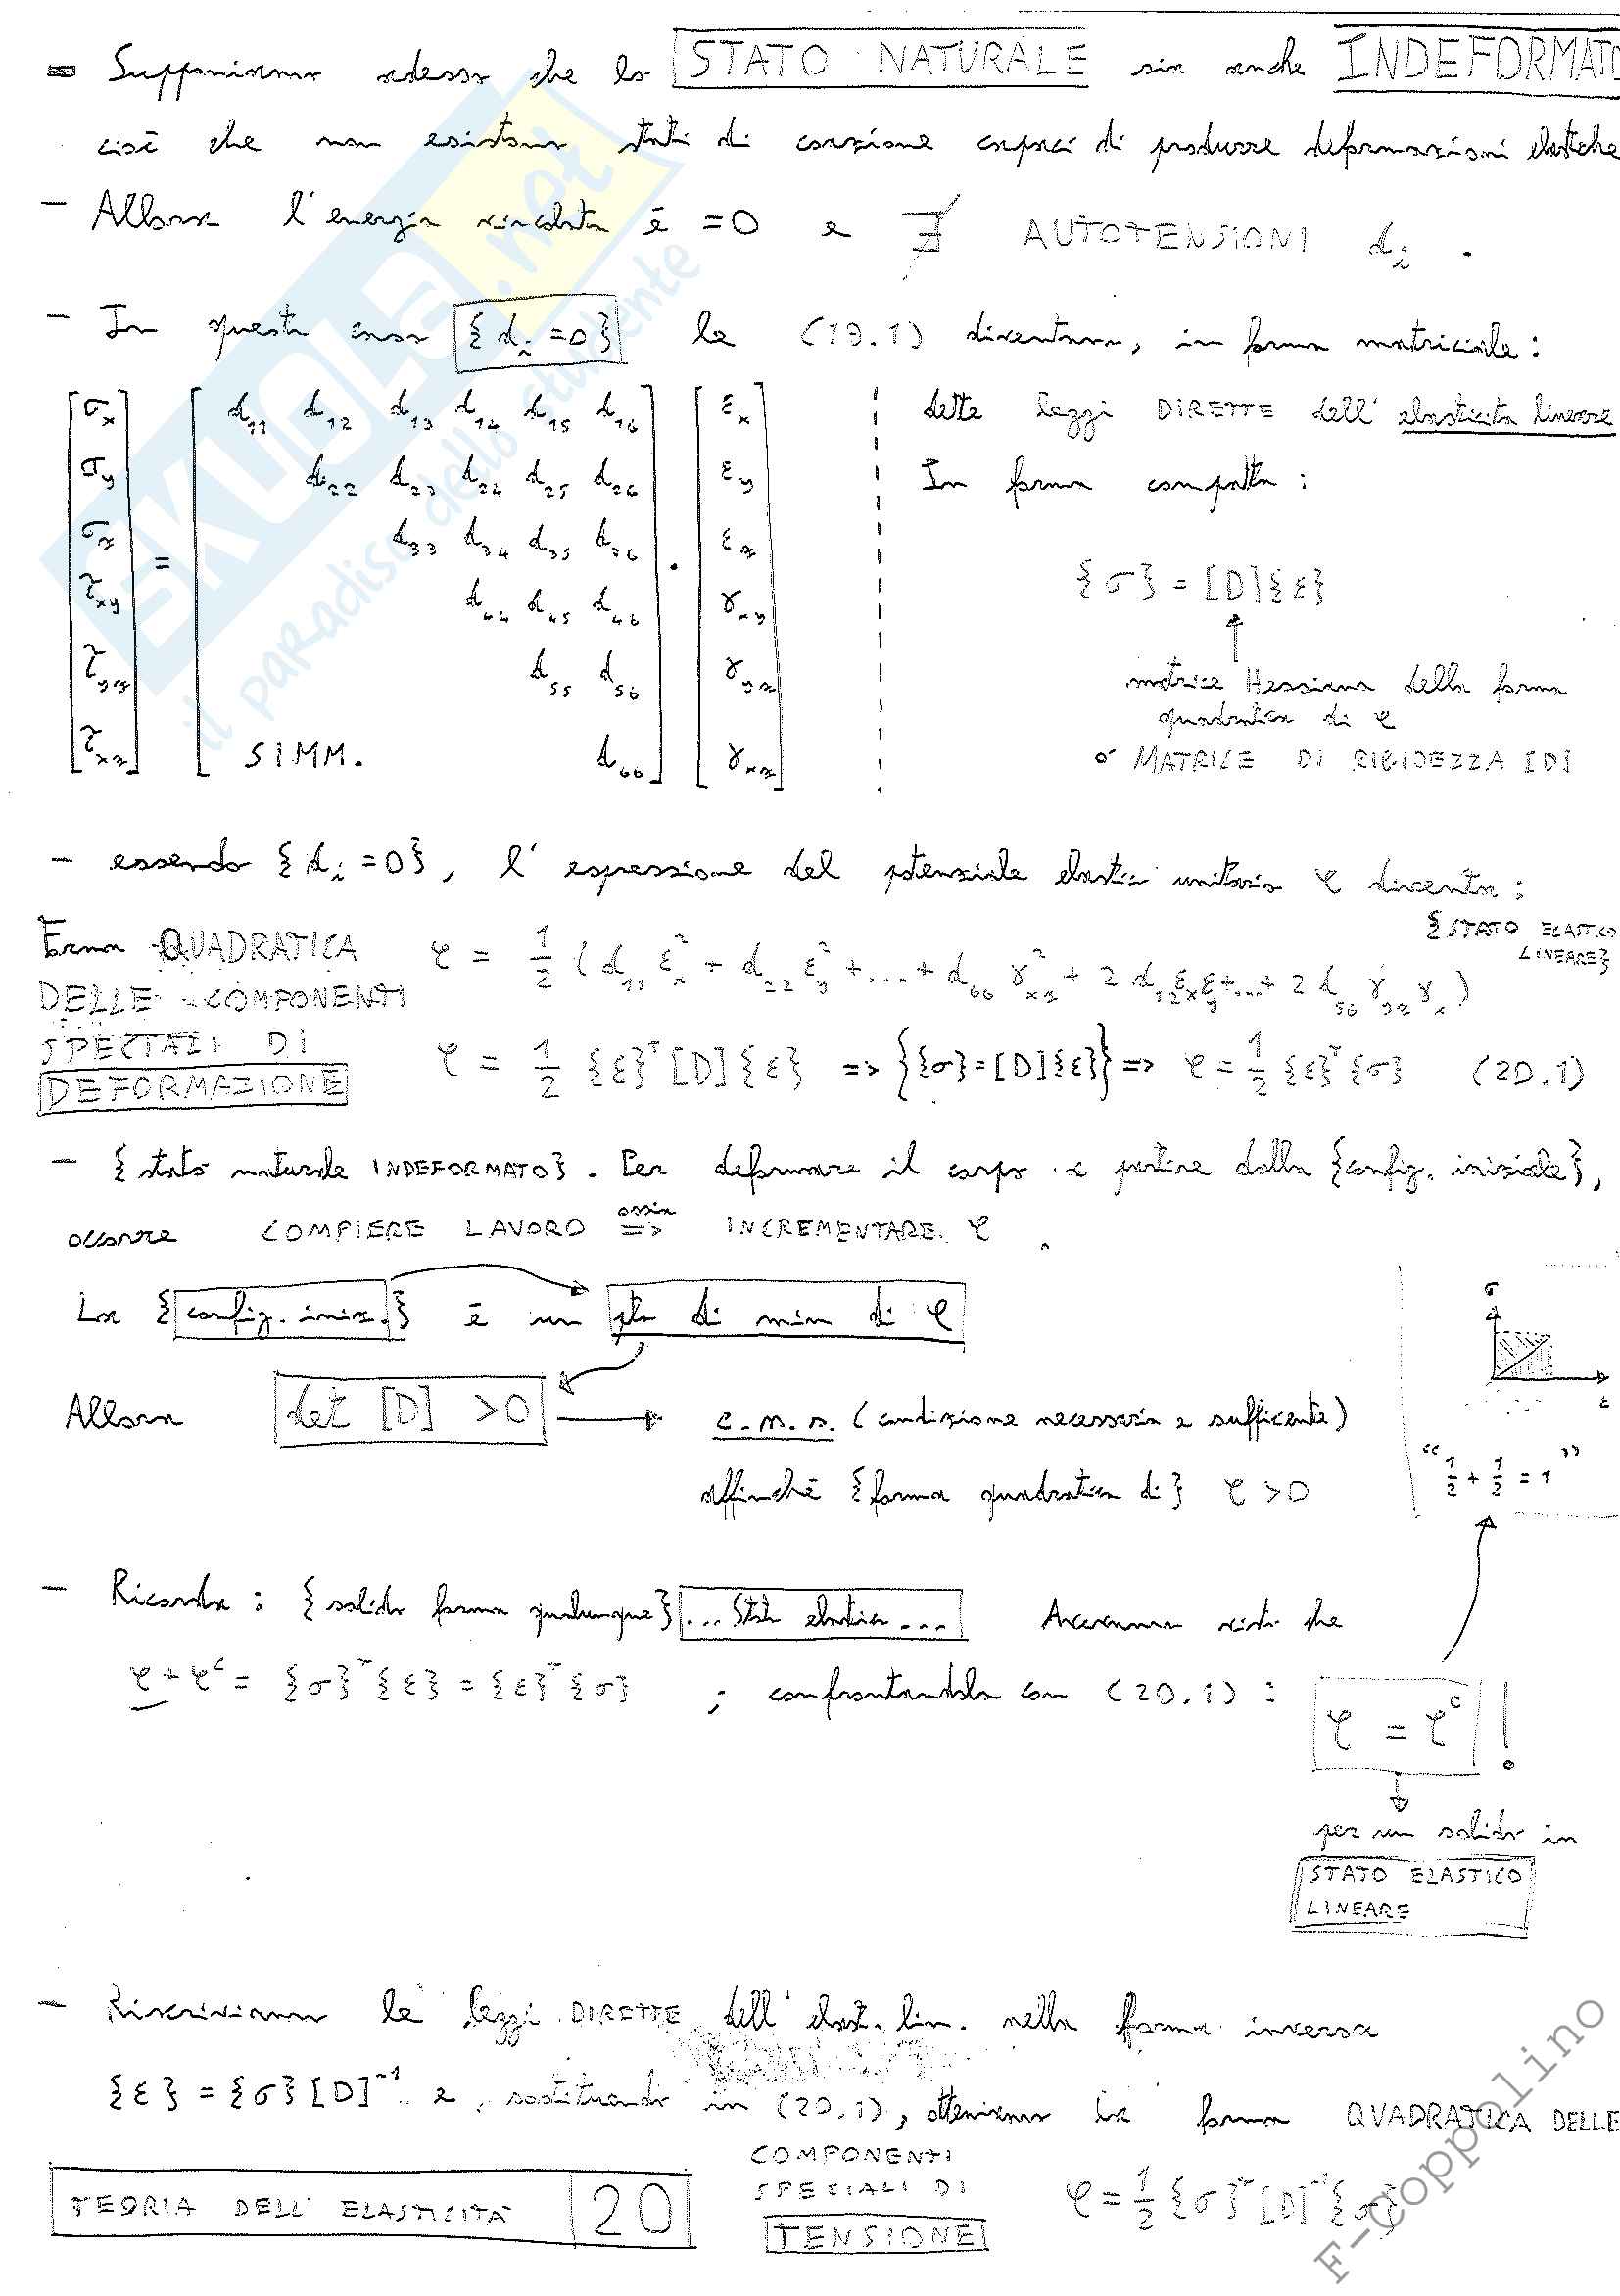 = Supponiamo adesso che lo STATO NATURALE sia anche INDEFORMATO
cioè che non esistano stati di coazione capaci di produrre deformazioni elastiche
- Allora l'energia vincolata è =0 e ∄ AUTOTENSIONI di .
- In questo caso {di=0} le (19.1) diventano, in forma matriciale:
[σx] = [d11 d12 d13 d14 d15 d16] · [εx]
[σy] [d22 d23 d24 d25 d26] [εy]
[σz] [d33 d34 d35 d36] [εz]
[τxy] [d44 d45 d46] [γxy]
[τyz] [d55 d56] [γyz]
[τxz] [SIMM. d66] [γxz]
dette leggi DIRETTE dell'elasticità lineare
In forma compatta:
{σ} = [D]{ε}
matrice Hessiana della forma
quadratica di φ
o MATRICE DI RIGIDEZZA [D]
- essendo {di=0}, l'espressione del potenziale elastico unitario φ diventa:
{STATO ELASTICO
LINEARE}
Forma QUADRATICA
DELLE COMPONENTI
SPECIALI DI
DEFORMAZIONE
φ = 1/2 (d11 εx² + d22 εy² + ... + d66 γxz² + 2 d12 εx εy + ... + 2 d56 γyz γx)
φ = 1/2 {ε}ᵀ [D] {ε} => {{σ}=[D]{ε}} => φ = 1/2 {ε}ᵀ {σ} (20.1)
- {stato naturale INDEFORMATO}. Per deformare il corpo a partire dalla {config. iniziale},
occorre COMPIERE LAVORO ossia => INCREMENTARE φ .
La {config. iniz.} è un pto di min di φ
Allora det [D] >0 → c.n.s. (condizione necessaria e sufficente)
affinchè {forma quadratica di} φ >0
σ
ε
"1/2 + 1/2 = 1"
- Ricorda: {solido forma qualunque} ...Stato elastico... Avevamo visto che
φ + φᶜ = {σ}ᵀ{ε} = {ε}ᵀ{σ} ; confrontandola con (20.1): φ = φᶜ !
per un solido in
STATO ELASTICO
LINEARE
- Riscriviamo le leggi DIRETTE dell'elast. lin. nella forma inversa
{ε} = {σ}[D]⁻¹ e, sostituendo in (20.1), otteniamo la forma QUADRATICA DELLE
COMPONENTI
SPECIALI DI
TENSIONE
φ = 1/2 {σ}ᵀ [D]⁻¹ {σ}
TEORIA DELL'ELASTICITÀ 20
SKUOLA.net
il paradiso dello studente
F-coppolino